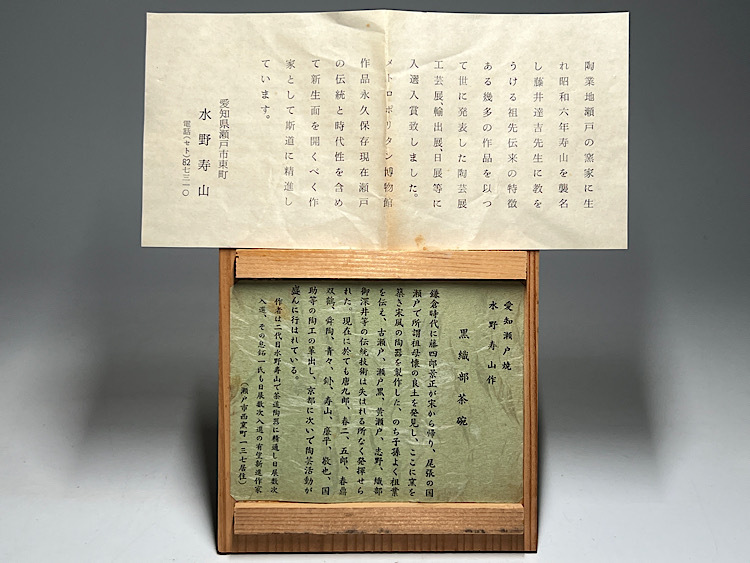 陶業地瀬戸の窯家に生
れ昭和六年寿山を襲名
し藤井達吉先生に教を
うける祖先伝来の特徴
ある幾多の作品を以つ
て世に発表した陶芸展
工芸展、輸出展日展等に
入選入賞致しました。
メトロポリタン博物館
作品永久保存現在瀬戸
の伝統と時代性を含め
て新生面を開くべく作
家として斯道に精進し
ています。
愛知県瀬戸市東町
水野寿山
電話(セト)82七三一〇
愛知瀬戸焼
水野寿山作
黒織部茶碗
鎌倉時代に藤四郎景正が宋から帰り、尾張の国
瀬戸で所謂祖母懐の良土を発見し、ここに窯を
築き宋風の陶器を製作した、のち子孫よく祖業
を伝え、古瀬戸、瀬戸黒、黄瀬戸、志野、織部
御深井等の伝統技術は失はれる所なく発揮せら
れた。現在に於ても唐九郎、春二、五郎、春鼎
双鶴、舜陶、青々、釥、寿山、廉平、敬也、国
助等の陶工の輩出し、京都に次いで陶芸活動が
盛んに行はれている。
作者は二代目水野寿山で茶道陶器に精通し日展数次
入選、その息鉐一氏も日展数次入選の有望新進作家
(瀬戸市西窯町一三七居住)